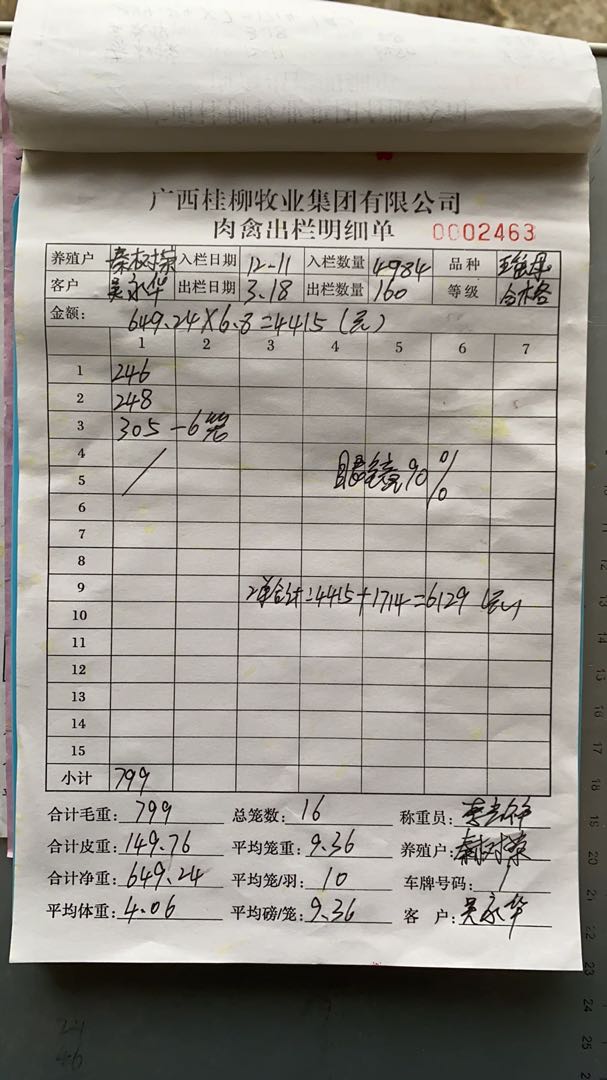 广西桂柳牧业集团有限公司
肉禽出栏明细单 0002463
养殖户 秦树荣 入栏日期 12-11 入栏数量 4984 品种
客户 吴永华 出栏日期 3.18 出栏数量 160 等级 合格
金额: 649.24×6.8=4415(元)
1 2 3 4 5 6 7
1 246
2 248
3 305-6笼
4
5 眼镜90%
6
7
8
9 2单合计=4415+1714=6129(元)
10
11
12
13
14
15
小计 799
合计毛重: 799 总笼数: 16 称重员:
合计皮重: 149.76 平均笼重: 9.36 养殖户: 秦树荣
合计净重: 649.24 平均笼/羽: 10 车牌号码: /
平均体重: 4.06 平均磅/笼: 9.36 客 户: 吴永华